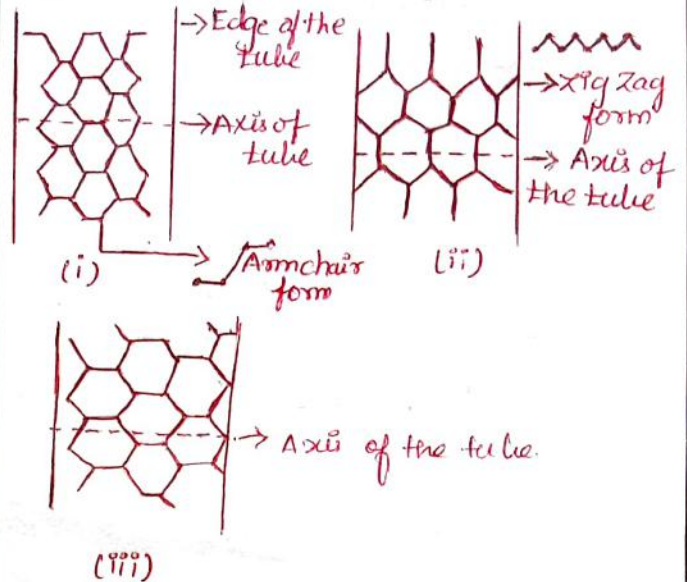 → Edge of the
tube
→ Axis of
tube
(i)
Armchair
form
→ Zig Zag
form
→ Axis of
the tube
(ii)
→ Axis of the tube.
(iii)